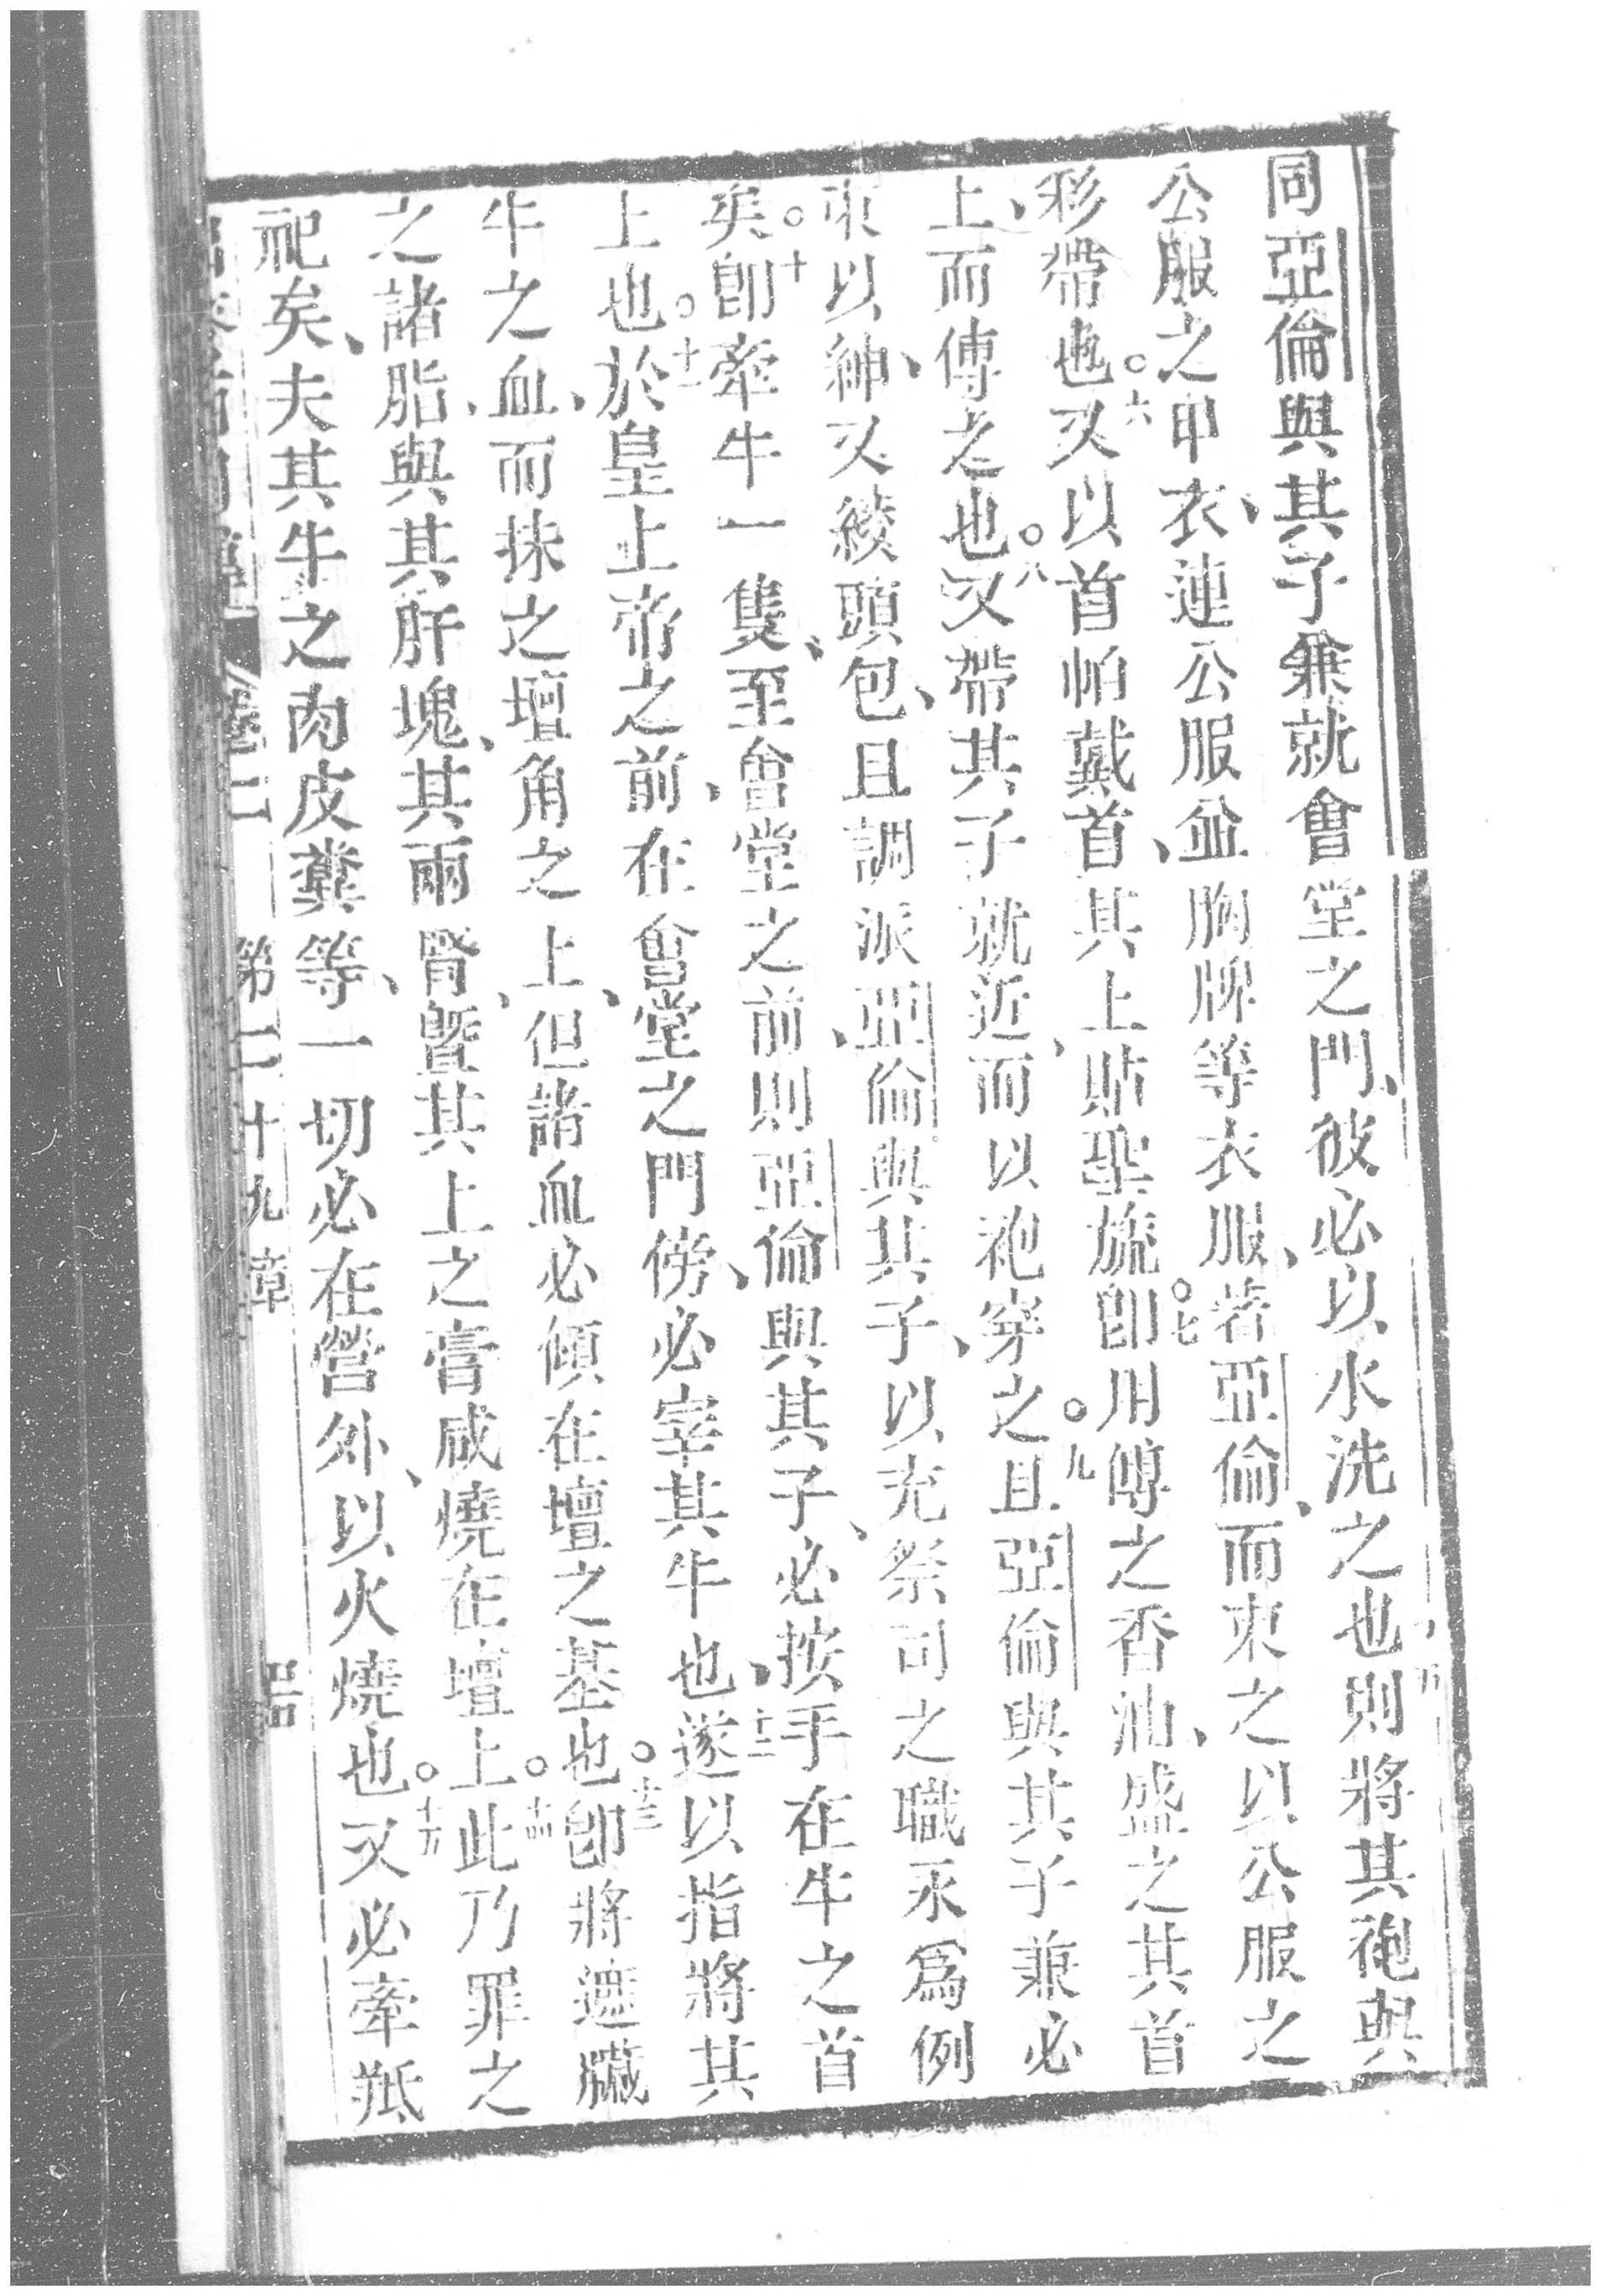 同亞倫與其子兼就會堂之門、彼必以水洗之也則將其袍與
公服之申衣、連公服並胸牌等衣服、著亞倫、而束之以公服之
彩帶也。六又以首帕戴首、其上貼聖旒卽。七用傅之香油、盛之其首
上、而傅之也。八又帶其子就近、而以袍穿之。九且亞倫與其子兼必
束以紳、又綾頭包、且調派、亞倫與其子、以充祭司之職永爲例
矣。十卽牽牛一隻、至會堂之前則亞倫與其子、必按手在牛之首
上也。十一於皇上帝之前、在會堂之門傍、必宰其牛也、十二遂以指將其
牛之血、而抹之壇角之上、但諸血必傾在壇之基也。十三卽將遮臟
之諸脂、與其肝塊、其兩腎、曁其上之膏咸燒在壇上。十四此乃罪之
祀矣、夫其牛之肉皮糞等、一切必在營外、以火燒也。十五又必牽羝
卷二 第二十九章